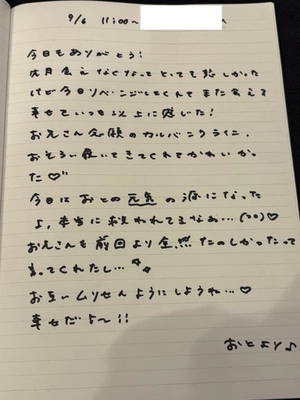 9/6 11:00〜
今日もありがとう!
次月会えなくなってとっても悲しかった
けど今日リベンジしてくれてまた会えて
幸せでいつも以上に感じた!
お兄さん念願のカルバンクライン、
おそろい履いてきてくれてかわいかっ
た♡"
今日はおとの元気の源になった
よ、本当に救われてるなぁ…(°°)♡
お兄さんも前回より全然たのしかったって
言ってくれたし…
お互いムリせんようにしようね…♡
幸せだよ〜!!
おとより♪